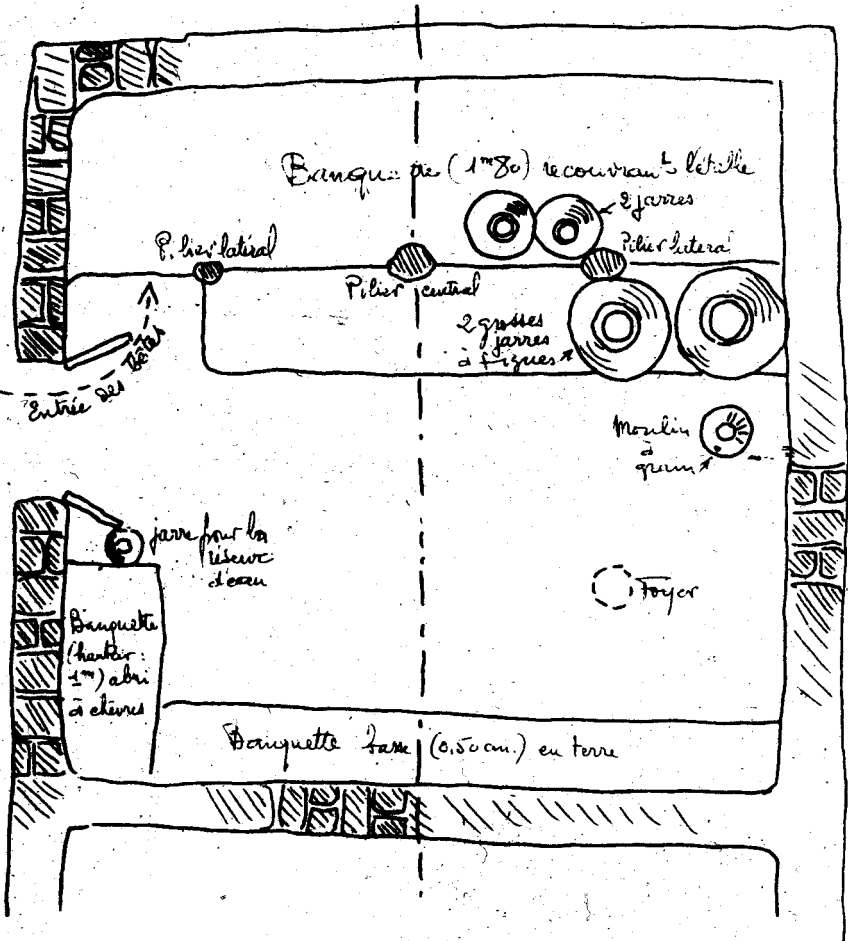 Banquette (1ᵐ80) recouvrant l'étable
2 jarres
Pilier latéral
Pilier lateral
Pilier central
2 grosses
jarres
à figues
Entrée des Bêtes
Moulin
à
grain
jarre pour la
réserve
d'eau
Foyer
Banquette
(hauteur :
1ᵐ) abri
à chèvres
Banquette basse (0,50 cm.) en terre